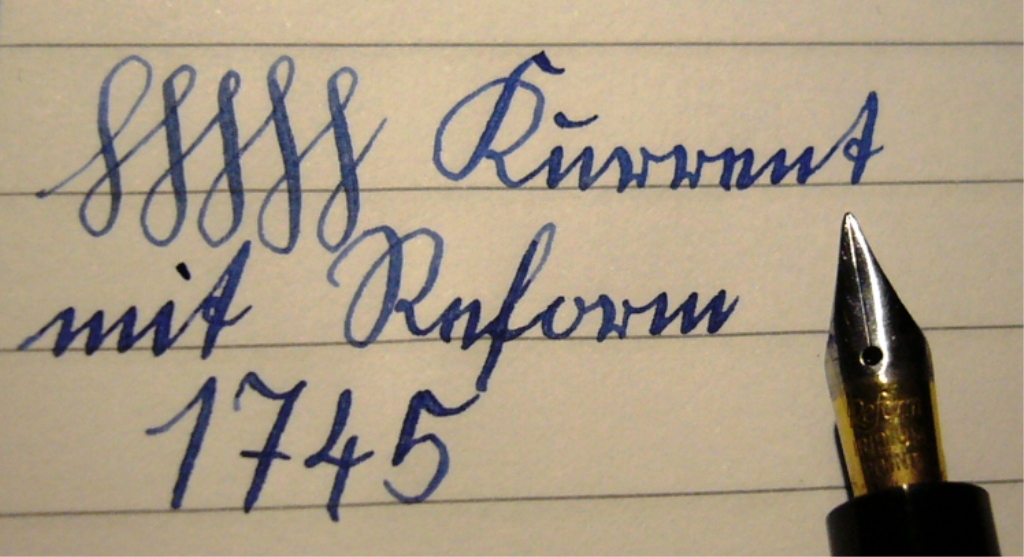 Kurrent
mit Reform
1745
Reform